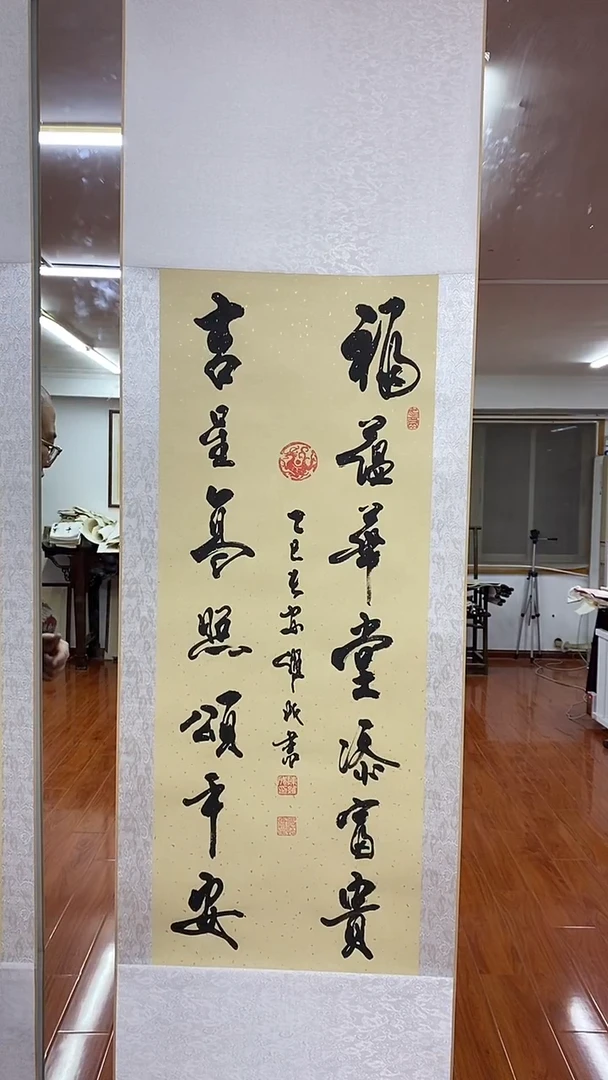 福蘊華堂添富貴
吉星高照頌平安
乙巳書